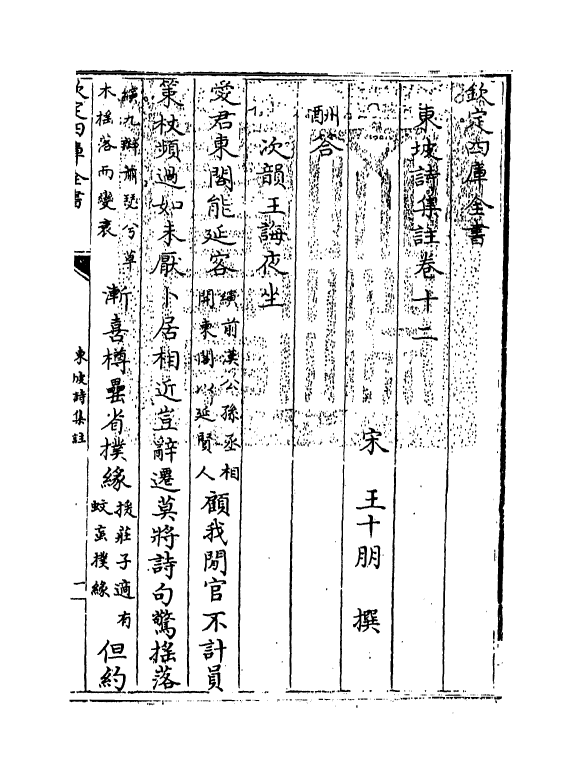 欽定四庫全書
東坡詩集註卷十二
宋 王十朋 撰
酬答
次韻王誨夜坐
愛君東閣能延客縯前漢公孫丞相開東閣以延賢人顧我閒官不計員
策杖頻過如未厭卜居相近豈辭遷莫將詩句驚搖落
縯九辯蕭瑟兮草木搖落而變衰漸喜樽罍省撲緣援莊子適有蚊䖟撲緣但約
欽定四庫全書
東坡詩集註
一